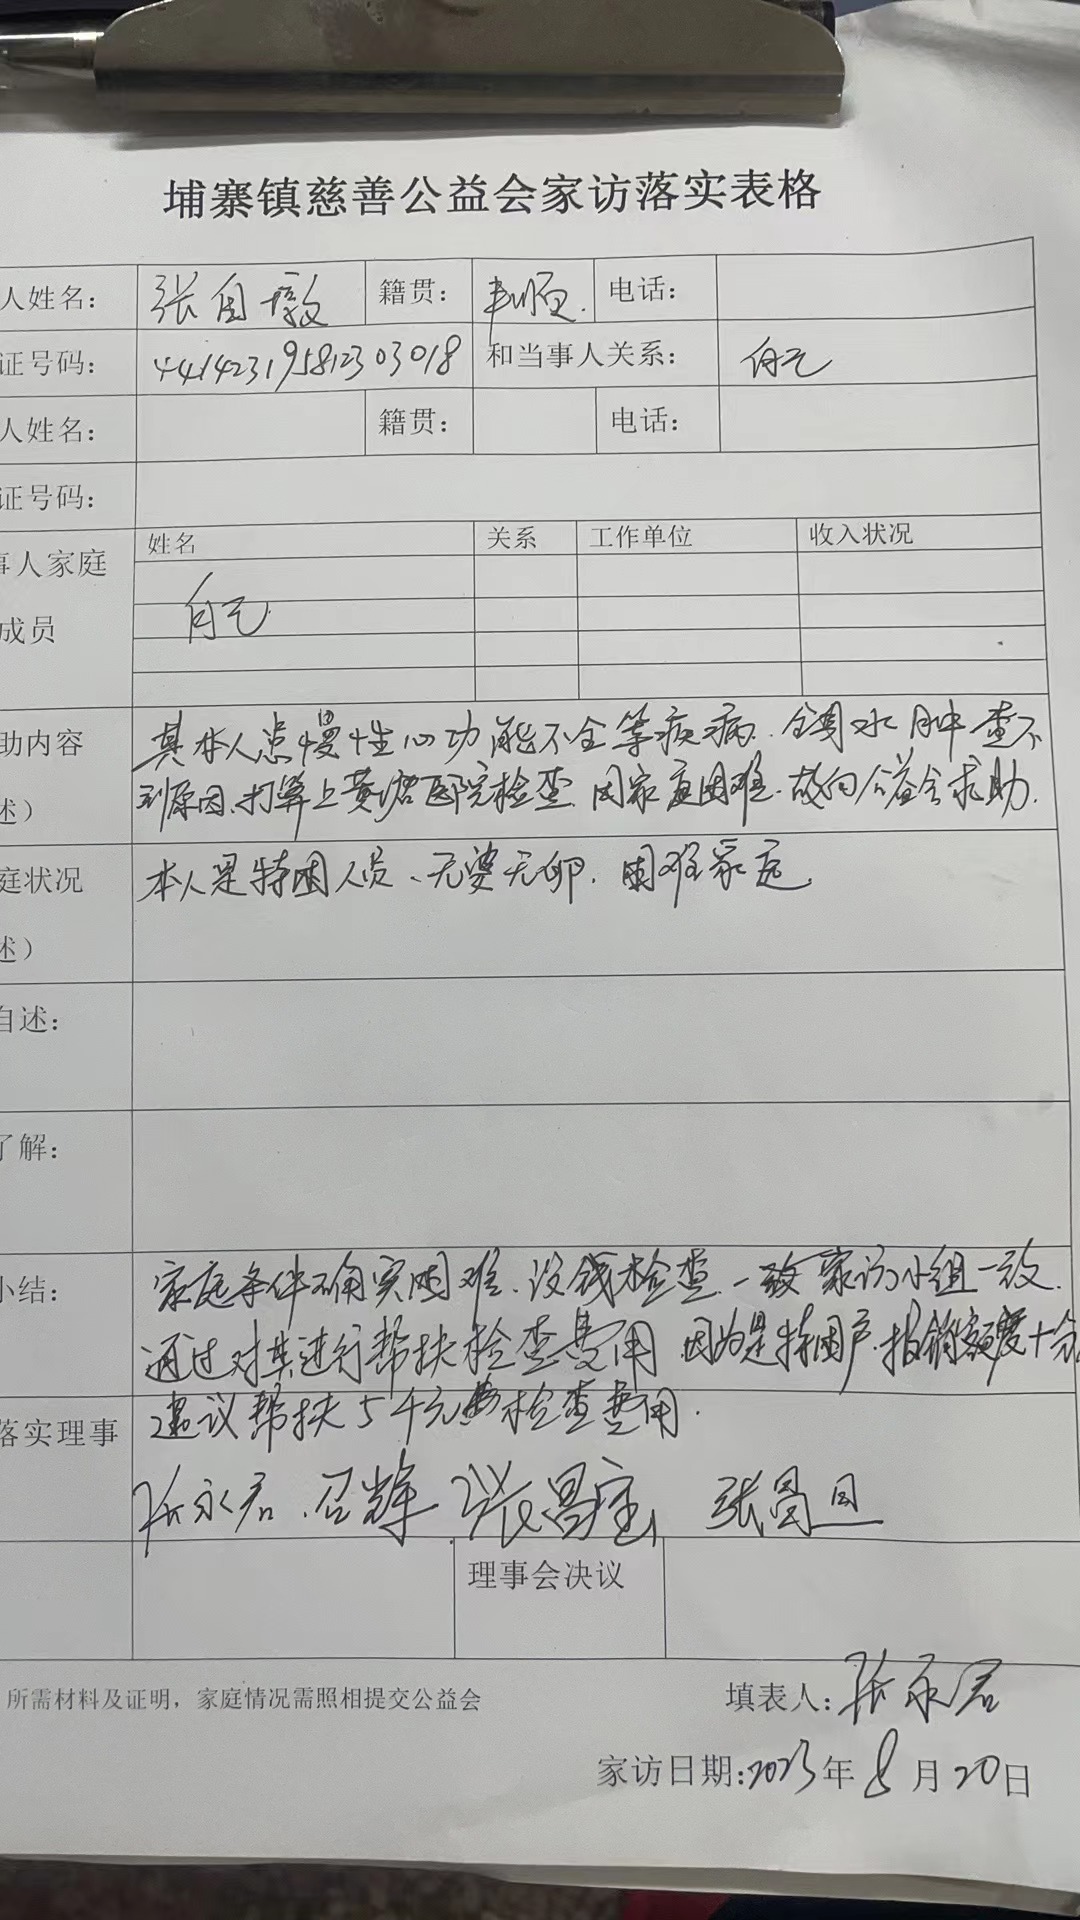 埔寨镇慈善公益会家访落实表格
人姓名： 张国墩 籍贯： 丰顺 电话：
证号码： 441423195812303018 和当事人关系：
人姓名： 籍贯： 电话：
证号码：
事人家庭成员 姓名 关系 工作单位 收入状况
助内容
述）
其本人患慢性心功能不全等疾病、全身水肿查不
到原因、打算上黄塘医院检查、因家庭困难、故向公益会求助.
庭状况
述）
本人是特困人员、无妻无卵、困难家庭
自述：
了解：
小结： 家庭条件确实困难、没钱检查、一致家访小组一致
通过对其进行帮扶检查费用、因为是特困户、报销额度十分
落实理事 建议帮扶5千元 检查费用.
张永君、召辉 张昌宝 张昌国
理事会决议
所需材料及证明，家庭情况需照相提交公益会 填表人： 张永君
家访日期：2023年8月20日